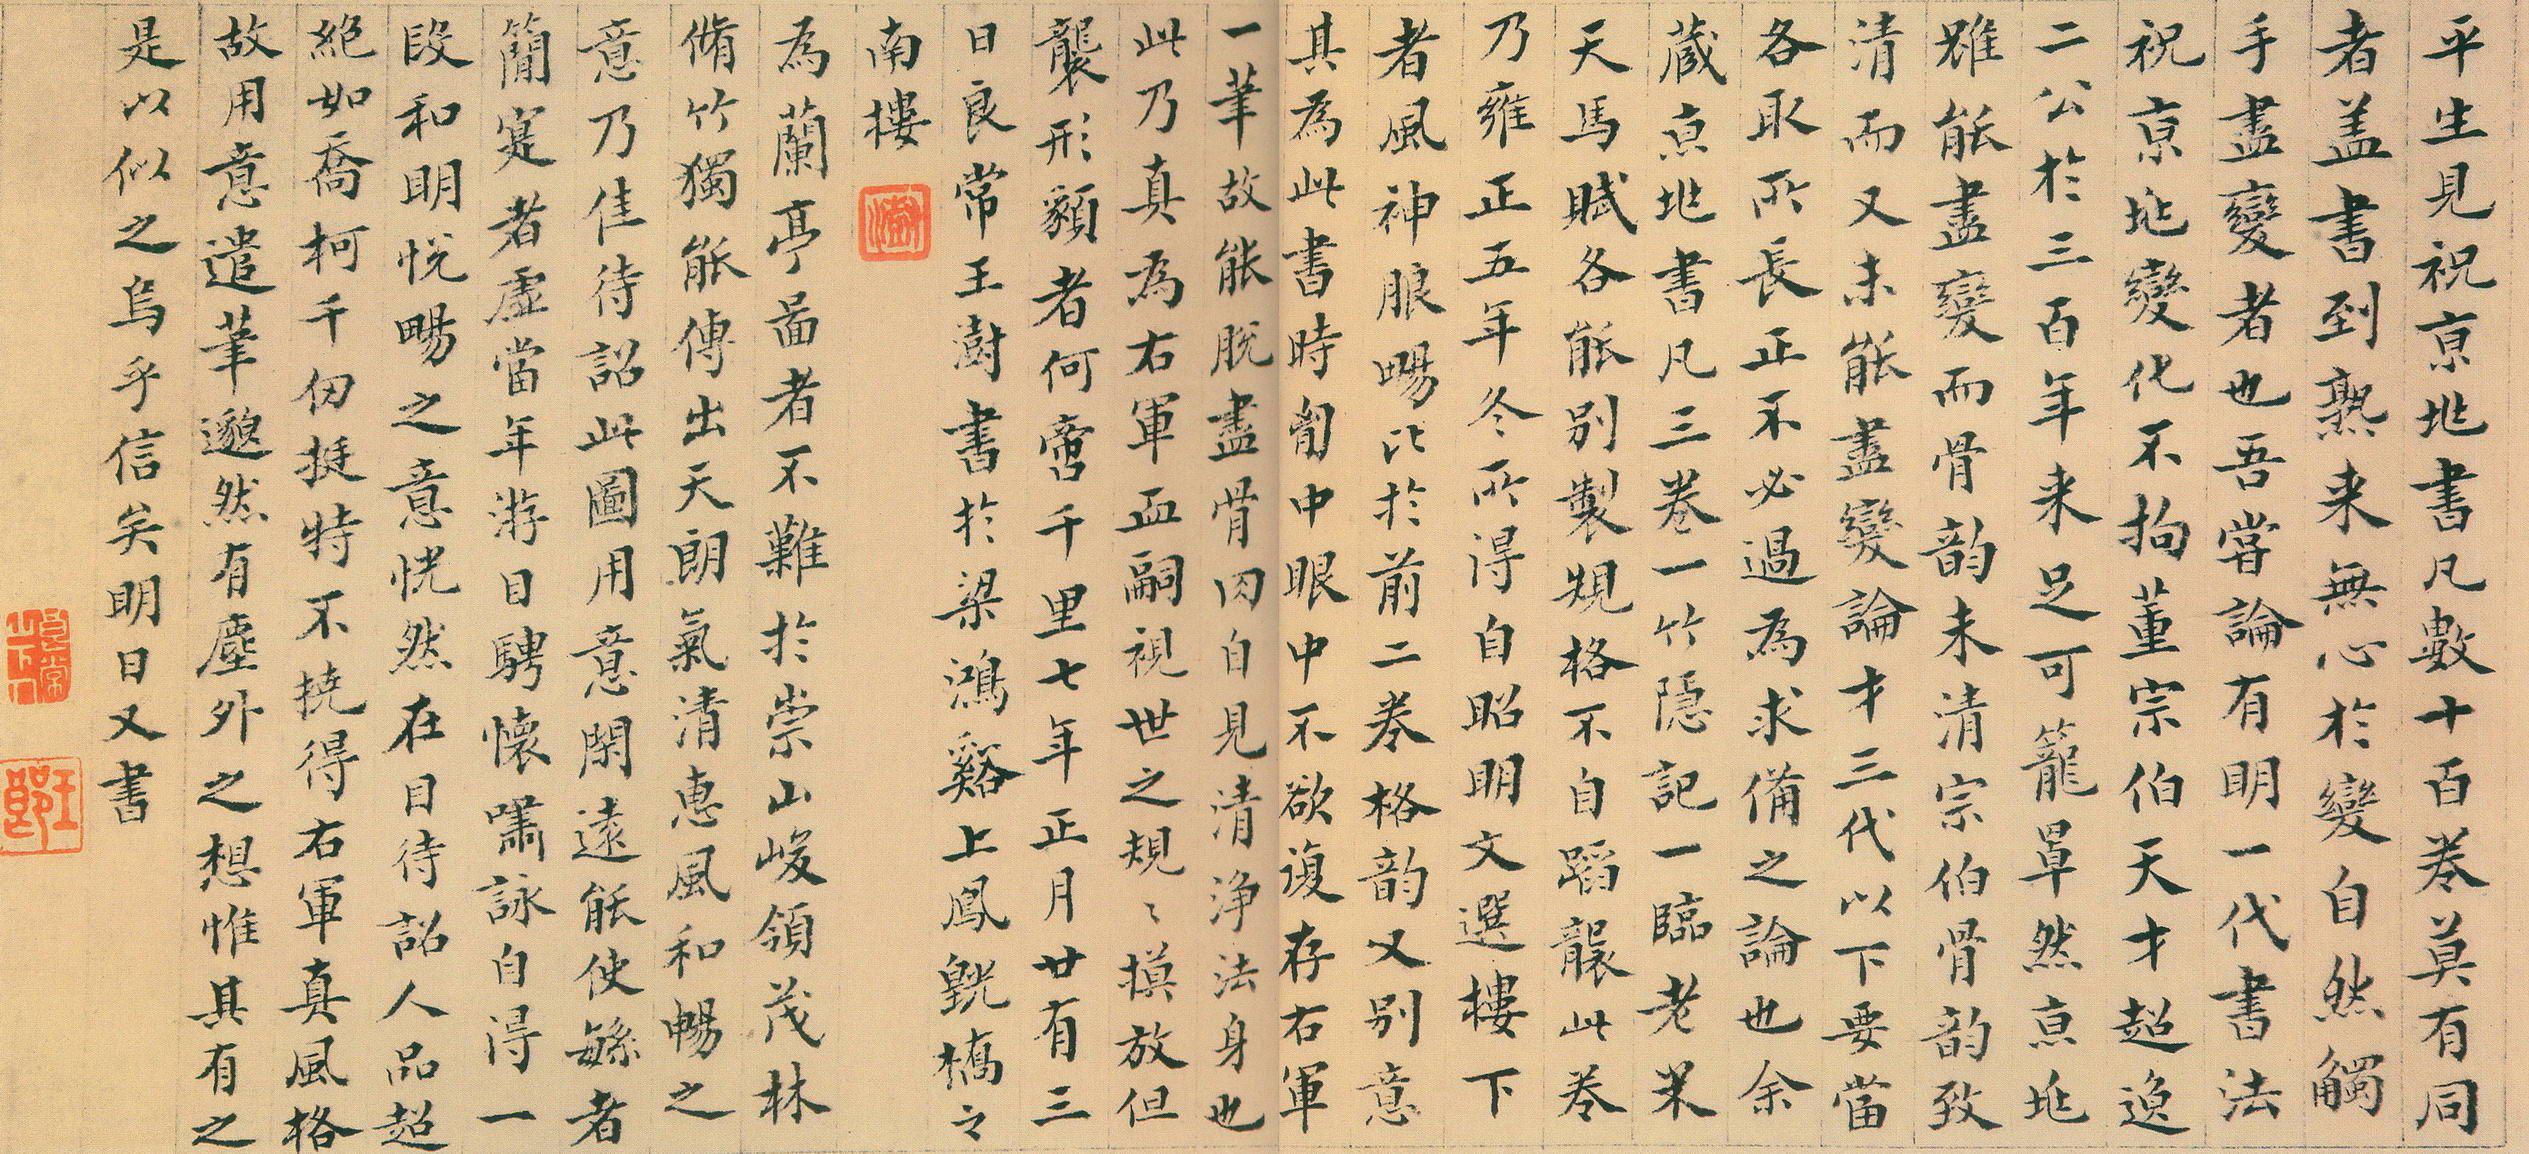 平生見祝京兆書凡數十百卷莫有同
者盖書到熟来無心於變自然觸
手盡變者也吾嘗論有明一代書法
祝京兆變化不拘董宗伯天才超逸
二公於三百年来足可籠罩然京兆
雖能盡變而骨韵未清宗伯骨韵致
清而又未能盡變論才三代以下要當
各取所長正不必過為求備之論也余
蔵京兆書凡三卷一竹隠記一臨老米
天馬賦各能別製規格不自蹈襲此卷
乃雍正五年冬所得自昭明文選樓下
者風神脹暢比於前二卷格韵又别意
其為此書時匈中眼中不欲復存右軍
一筆故能脫盡骨肉自見清浄法身也
此乃真為右軍血嗣視世之規〻摸放但
襲形貌者何啻千里七年正月廿有三
日良常王澍書於梁鴻谿上鳳𣪠橋之
南樓
澍
為蘭亭啚者不難於崇山峻領茂林
脩竹獨能傳出天朗氣清惠風和暢之
意乃佳待詔此圖用意閑遠能使繇者
簡寔者虛當年游目騁懷嘯詠自得一
段和明悅暢之意恍然在目待詔人品超
絶如喬柯千仞挺特不撓得右軍真風格
故用意遣筆邈然有塵外之想惟其有之
是以似之烏乎信矣明日又書